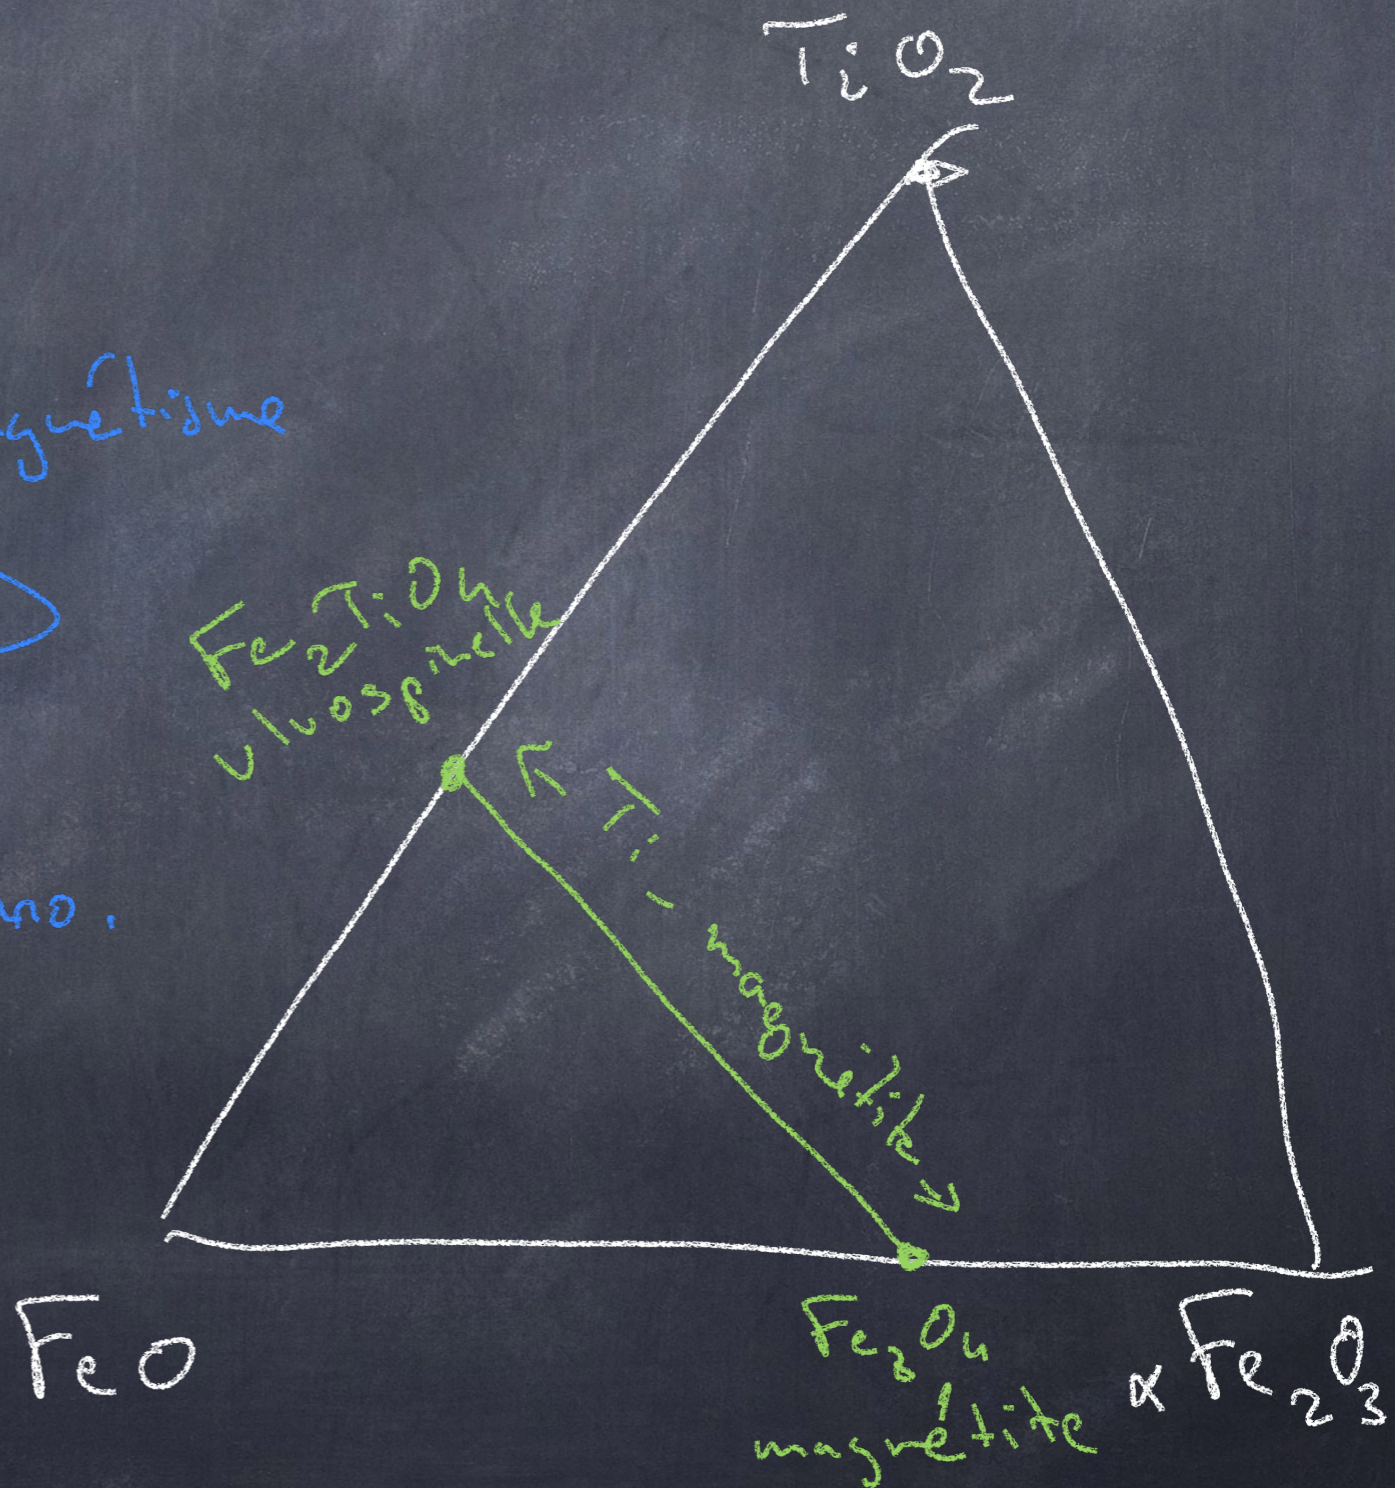 TiO2
gnétisme
Fe2TiO4
ulvospinelle
Ti-magnétite
no.
FeO
Fe3O4
magnétite
αFe2O3